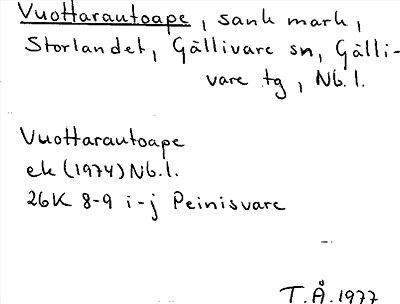 Vuottarautoape, sank mark,
Storlandet, Gällivare sn, Gälli-
vare tg, Nb.l.
Vuottarautoape
ek (1974) Nb.l.
26K 8-9 i-j Peinisvare
T.Å.1977